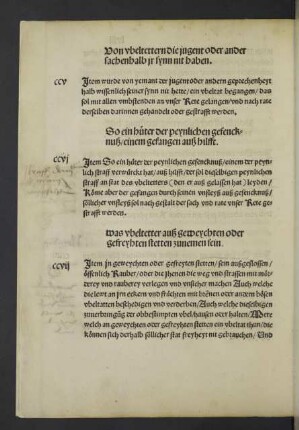 Von vbeltettern die jugent oder ander
sachenhalb jr synn nit haben.
ccv Jtem würde von yemant der jugent oder andern geprechenheyt
halb wissenlich seiner synn nit hette / ein vbeltat begangen / das
sol mit allen vmbstenden an vnser Rete gelangen / vnd nach rate
derselben darinnen gehandelt oder gestrafft werden.
So ein hüter der peynlichen gefenck-
nuß / einem gefangen auß hilfft.
ccvj Jtem So ein hüter der peynlichen gefencknuß / einem der peyn-
lich straff verwürckt hat / auß hilfft / der sol dieselbigen peynlichen
straff an stat des vbeltetters (den er auß gelassen hat) leyden /
Köme aber der gefangen durch seinen vnfleyß auß gefencknuß /
söllicher vnfleyß sol nach gestalt der sach vnd rate vnser Rete ge-
strafft werden.
Was vbeltetter auß geweychten oder
gefreyhten stetten zunemen sein.
ccvij Jtem jn geweychten oder gefreyten stetten / sein außgeslossen /
öffenlich Rauber / oder die jhenen die weg vnd strassen mit mör-
derey vnd rauberey verlegen vnd vnsicher machen Auch welche
die lewt an jrn eckern vnd früchten mit brenen oder anderm bösen
vbeltatten beschedigen vnd verderben / Auch welche dieselbigen
zuuerbringung der obbestimpten vbel / hausen oder halten / Mere
welch an geweychten oder gefreyhten stetten ein vbeltat thun / die
können sich derhalb söllicher stat freyheyt nit gebrauchen / Vnd